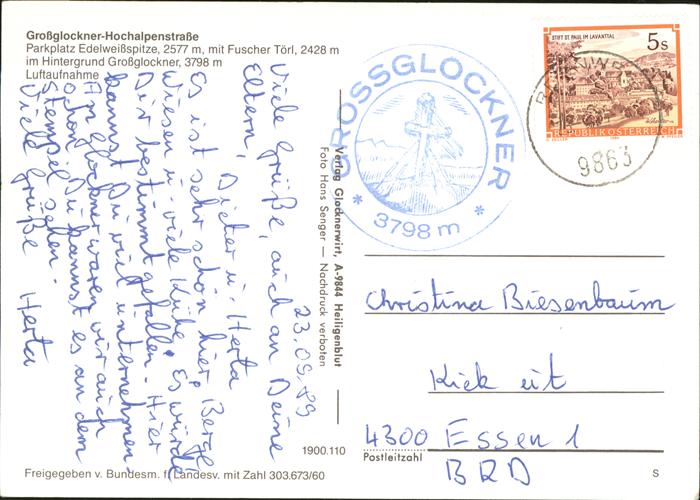 Großglockner-Hochalpenstraße
Parkplatz Edelweißspitze, 2577 m, mit Fuscher Törl, 2428 m
im Hintergrund Großglockner, 3798 m
Luftaufnahme
23.09.89
Viele Grüße, auch an Deine
Eltern, Dieter u. Herta
Es ist sehr schön hier, Berge
Wiesen u. viele Kühe. Es würde
Dir bestimmt gefallen. Hier
kannst Du viel unternehmen.
Am Glockner waren wir auch
schon, Du kannst es an dem
Stempel sehen.
Viele Grüße Herta
Verlag Glocknerwirt, A-9844 Heiligenblut
Foto Hans Senger — Nachdruck verboten
GROSSGLOCKNER
* 3798 m *
STIFT ST. PAUL IM LAVANTTAL
5 s
REPUBLIK ÖSTERREICH
9863
Christina Biesenbaum
Kick eit
4300 Essen 1
Postleitzahl
BRD
1900.110
Freigegeben v. Bundesm. f. Landesv. mit Zahl 303.673/60
S